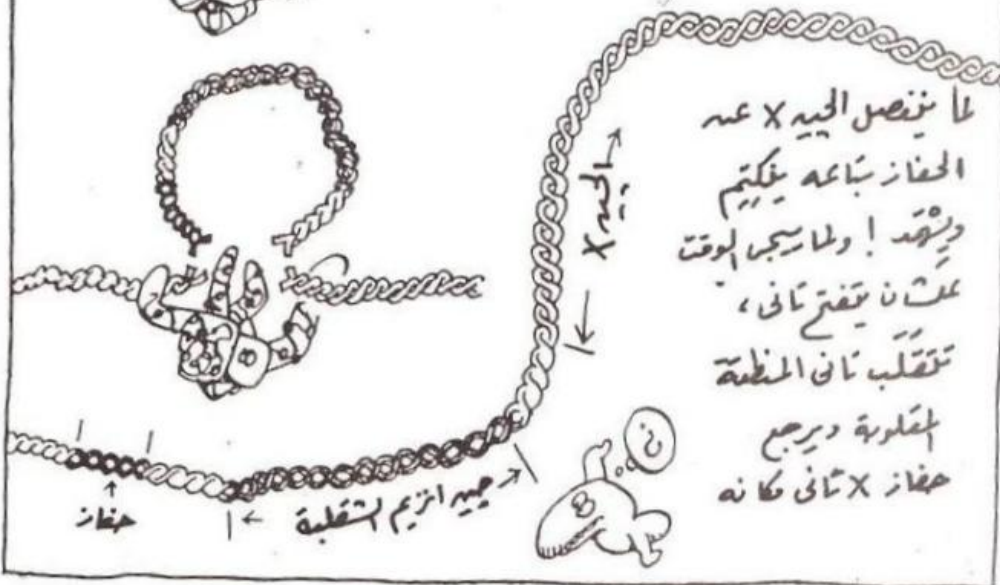 لما ينفصل الجيه X عنه
الحفاز بتاعه يتكتم
ويتهمد ! ولما ييجى الوقت
علشان يتفتح تانى ،
تتقلب تانى المنطقة
المقلوبة ويرجع
حفاز X تانى مكانه
الجيه X
جيه انزيم الشقلبة
حفاز
؟